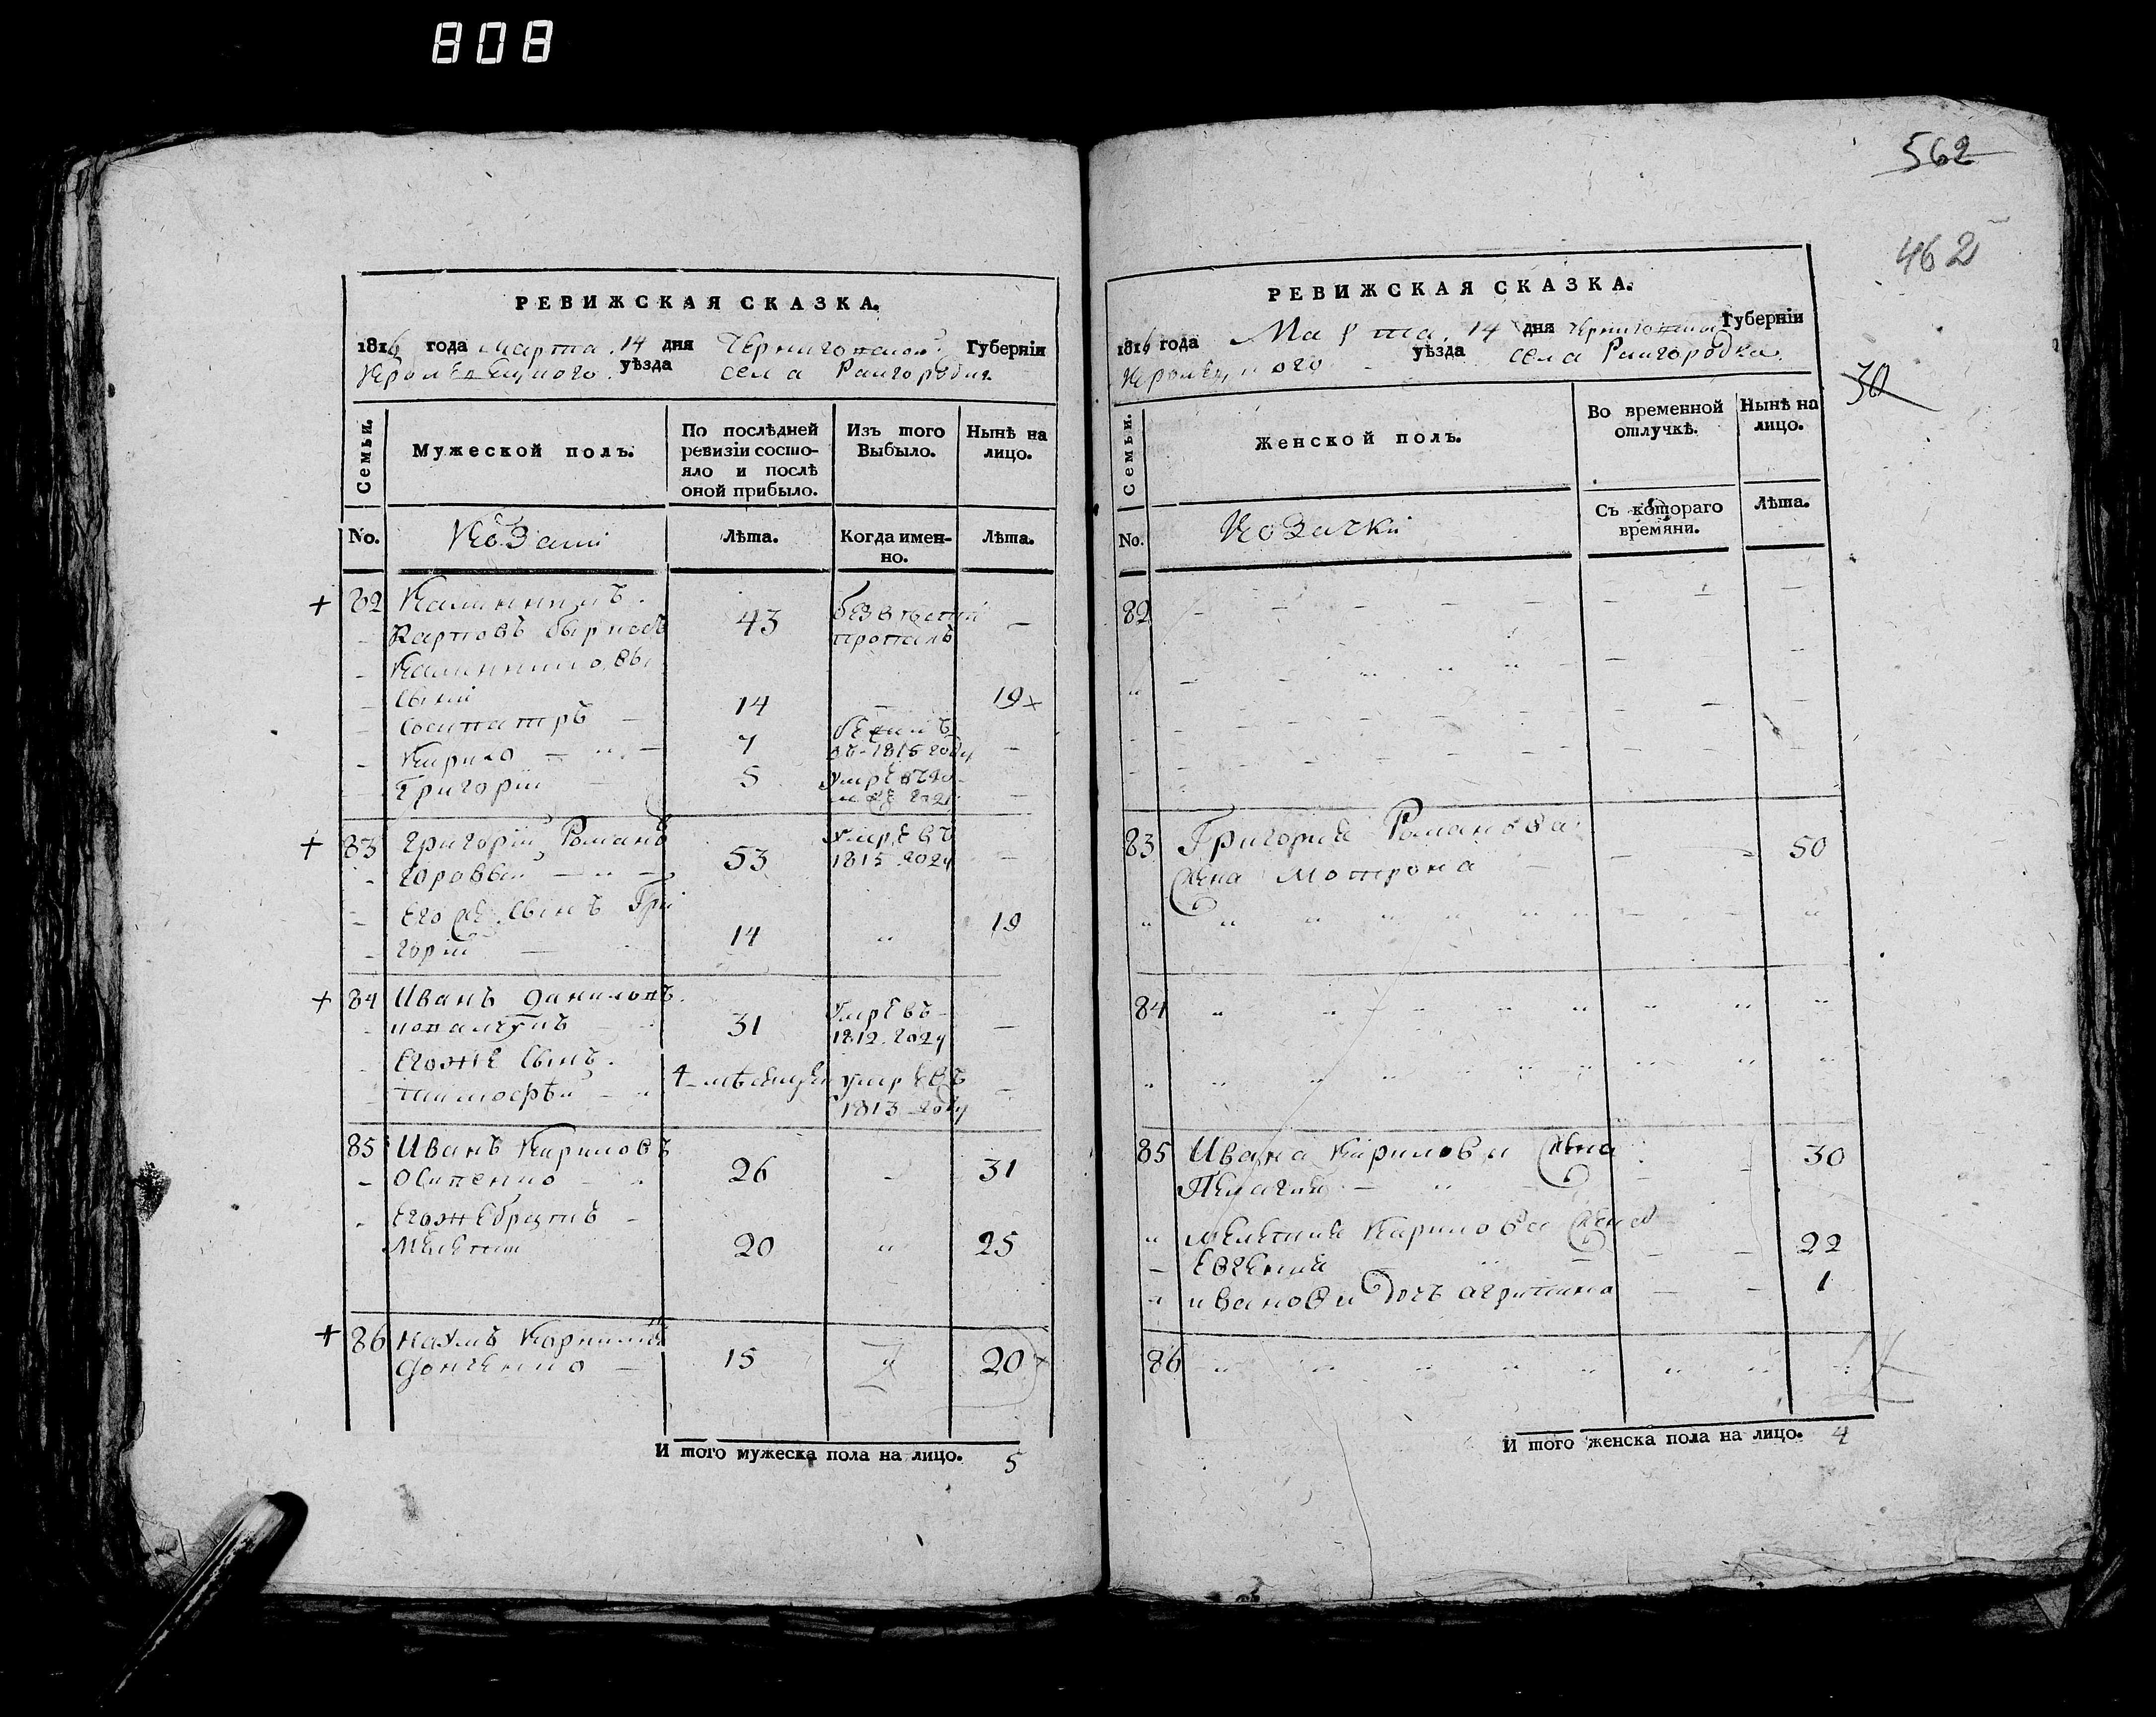 808
562
462
30
РЕВИЖСКАЯ СКАЗКА.
1816 года Марта 14 дня Черниговской Губерніи
Кролевецкого уѣзда села Райгородка
Семьи.
Мужеской полъ.
По послѣдней ревизіи состояло и послѣ оной прибыло.
Изъ того Выбыло.
Нынѣ на лицо.
No.
Козаки
Лѣта.
Когда именно.
Лѣта.
+ 82 Калинникъ
Карповъ 43 безвѣстно пропалъ —
Калинниковы
Сыны
Сосипатръ 14 — 19
Кирило 7 въ 1815 году —
Григорій 5 году —
+ 83 Григорій Романовъ
53 Умре въ 1815 году —
Его же Сынъ Гри
горій 14 " 19
+ 84 Иванъ Даниловъ
31 Умре въ 1812 году —
Егоже Сынъ
Тимофѣй 4 мѣсяцы умре въ 1813 году —
85 Иванъ Кириловъ
Осипенко 26 - 31
Егоже братъ
Мелетій 20 " 25
+ 86 Наумъ
15 " 20
И того мужеска пола на лицо. 5
РЕВИЖСКАЯ СКАЗКА.
1816 года Марта 14 дня Черниговской Губерніи
Кролевецкого уѣзда села Райгородка
Семьи.
Женской полъ.
Во временной отлучкѣ.
Нынѣ на лицо.
No.
Козачки
Съ котораго времяни.
Лѣта.
82
83 Григорія Романова
Жена Мотрона 50
84
85 Ивана Кирилова Жена
Пелагия 30
Мелетия Кирилова Жена
Евгения 22
Иванова дочь Агрипина 1
86
И того женска пола на лицо. 4